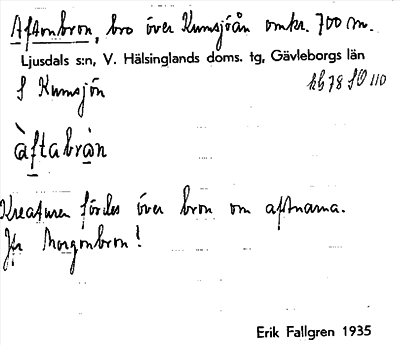 Aftonbron, bro över Kumsjöån omkr. 700 m.
Ljusdals s:n, V. Hälsinglands doms. tg, Gävleborgs län
S Kumsjön
hG 78 SO 110
àftabràn
Kreaturen fördes över bron om aftnarna.
Jfr Morgonbron!
Erik Fallgren 1935